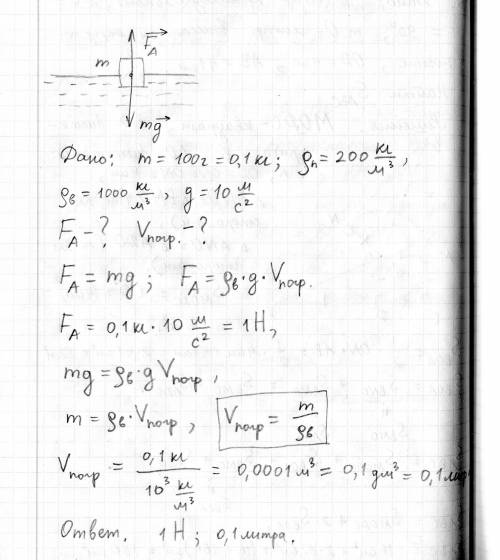 F_A
m
mg
Дано: m = 100г = 0,1 кг; ρп = 200 кг/м³,
ρв = 1000 кг/м³, g = 10 м/с²
F_A - ? Vпогр. - ?
F_A = mg; F_A = ρв·g·Vпогр.
F_A = 0,1 кг · 10 м/с² = 1Н,
mg = ρв·g Vпогр,
m = ρв·Vпогр, Vпогр = m/ρв
Vпогр = 0,1 кг / 10³ кг/м³ = 0,0001 м³ = 0,1 дм³ = 0,1 литр
Ответ. 1Н; 0,1 литра.